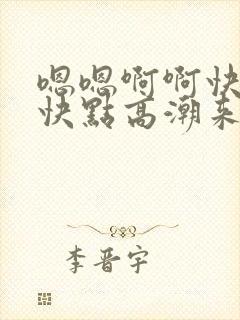 嗯嗯啊啊快
快點高潮来
李晋宇